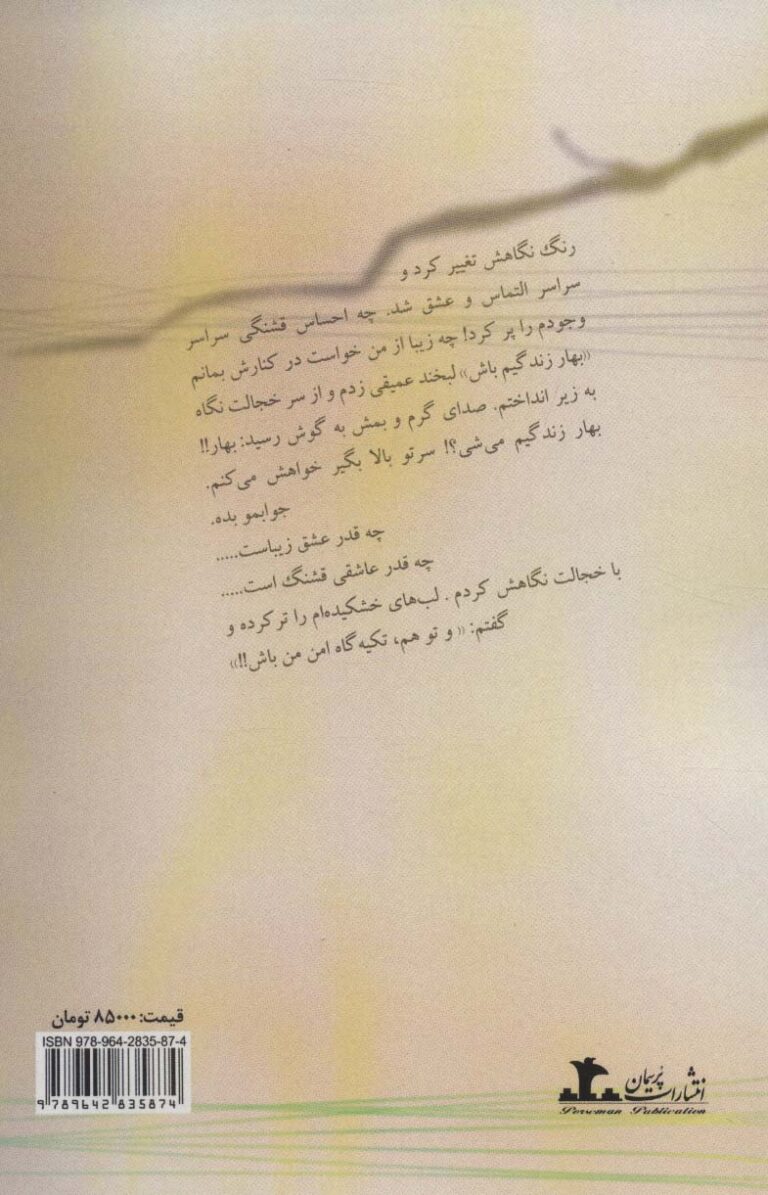 رنگ نگاهش تغییر کرد و
سراسر التماس و عشق شد. چه احساس قشنگی سراسر
وجودم را پر کرد! چه زیبا از من خواست در کنارش بمانم
«بهار زندگیم باش» لبخند عمیقی زدم و از سر خجالت نگاه
به زیر انداختم. صدای گرم و بمش به گوش رسید: بهار!!
بهار زندگیم می‌شی؟! سرتو بالا بگیر خواهش می‌کنم.
جوابمو بده.
چه قدر عشق زیباست.....
چه قدر عاشقی قشنگ است.....
با خجالت نگاهش کردم . لب‌های خشکیده‌ام را تر کرده و
گفتم: « و تو هم، تکیه‌گاه امن من باش!!»
قیمت: ۸۵۰۰۰ تومان
ISBN 978-964-2835-87-4
9 789642 835874
انتشارات پُرسمان
Porseman Publication